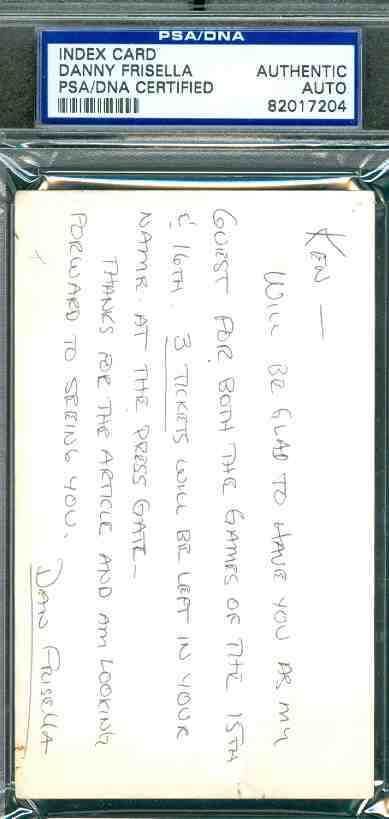 PSA/DNA
INDEX CARD
DANNY FRISELLA AUTHENTIC
PSA/DNA CERTIFIED AUTO
82017204
KEN —
WILL BE GLAD TO HAVE YOU AS MY
GUEST FOR BOTH THE GAMES OF THE 15TH
& 16TH. 3 TICKETS WILL BE LEFT IN YOUR
NAME AT THE PRESS GATE—
THANKS FOR THE ARTICLE AND AM LOOKING
FORWARD TO SEEING YOU.
DAN FRISELLA